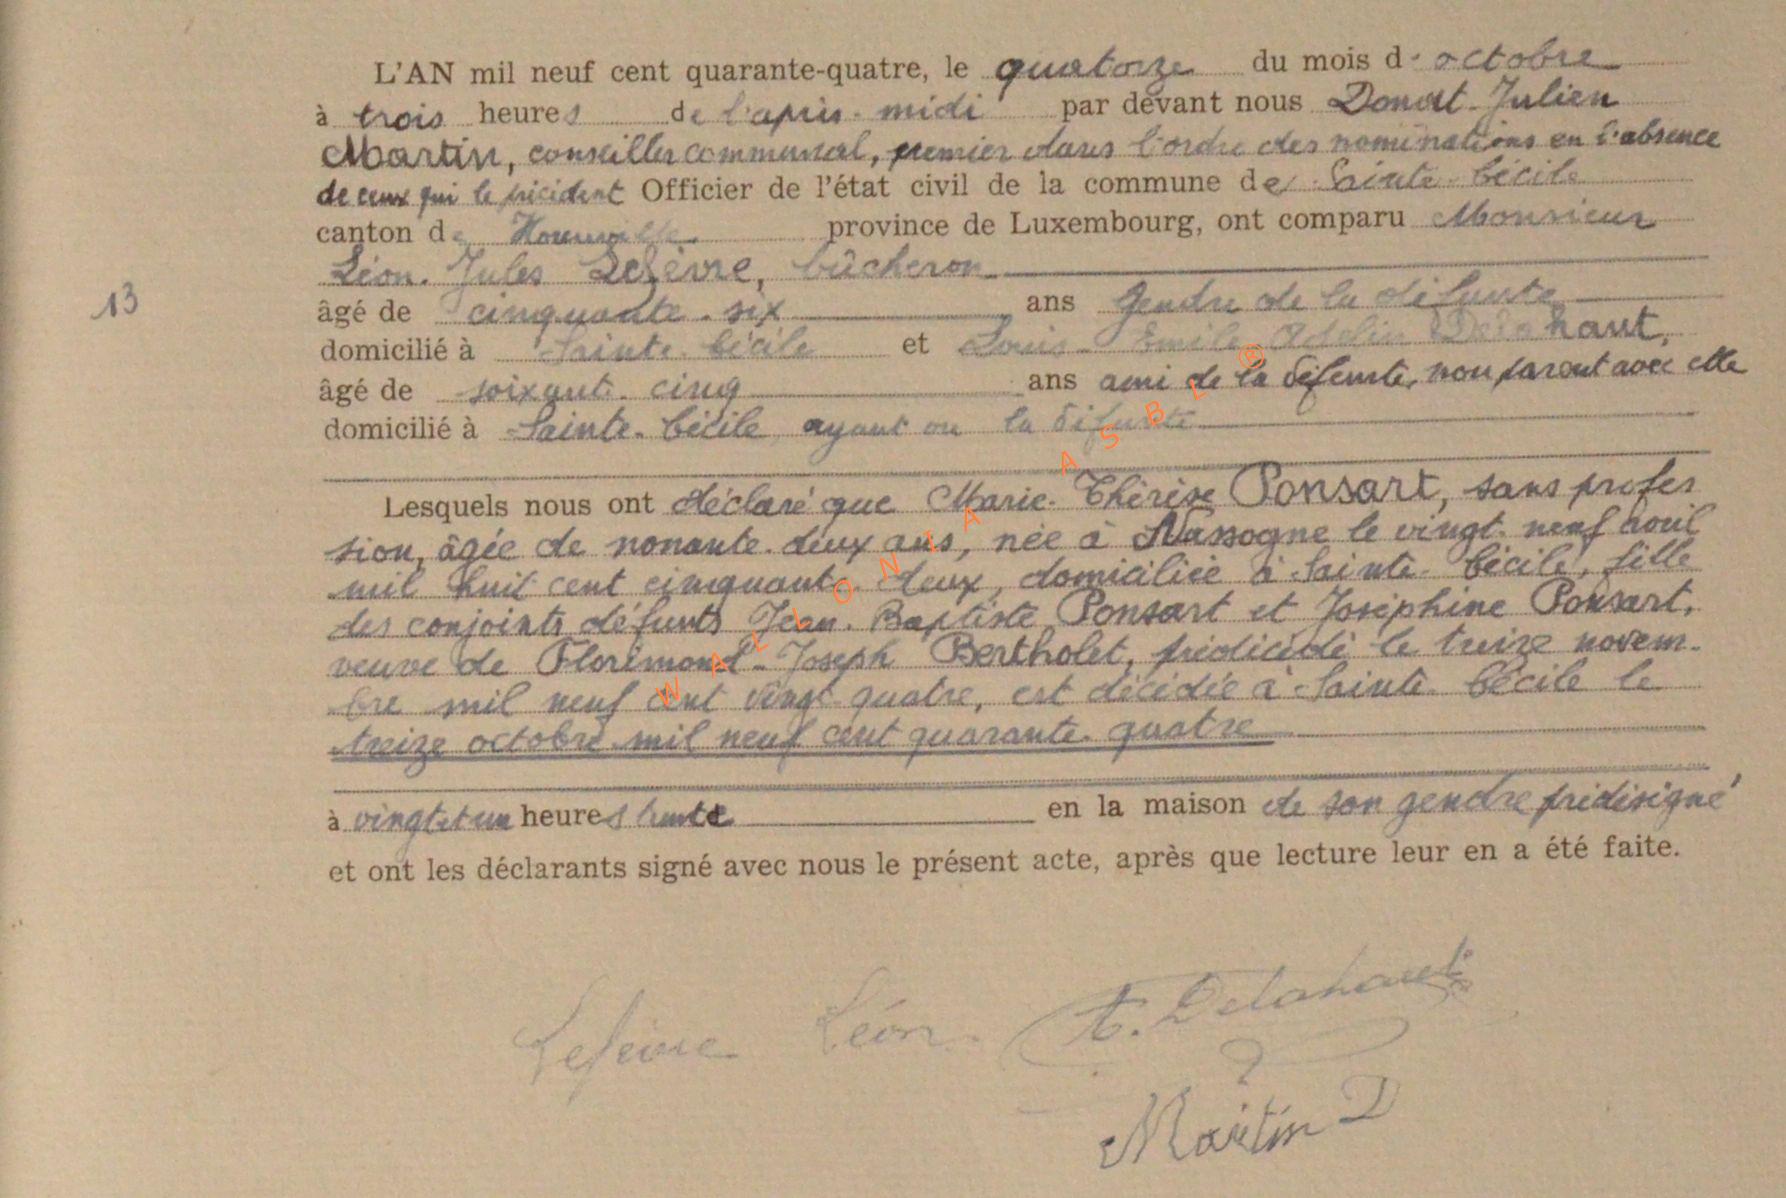 L'AN mil neuf cent quarante-quatre, le quatorze du mois d' octobre
à trois heures de l'après-midi par devant nous Donat-Julien
Martin, conseiller communal, premier dans l'ordre des nominations en l'absence
de ceux qui le précèdent Officier de l'état civil de la commune de Sainte-Cécile
canton de province de Luxembourg, ont comparu Monsieur
Léon-Jules Lefèvre, bûcheron
13
âgé de cinquante-six ans gendre de la défunte
domicilié à Sainte-Cécile et Louis-Emile Adelin Delahaut,
âgé de soixante-cinq ans ami de la défunte, non parent avec elle
domicilié à Sainte-Cécile ayant vu la défunte
Lesquels nous ont déclaré que Marie-Thérèse Ponsart, sans profes
sion, âgée de nonante-deux ans, née à Nassogne le vingt-neuf avril
mil huit cent cinquante-deux, domiciliée à Sainte-Cécile, fille
des conjoints défunts Jean-Baptiste Ponsart et Joséphine Ponsart,
veuve de Florimond-Joseph Bertholet, prédécédé le treize novem-
bre mil neuf cent vingt-quatre, est décédée à Sainte-Cécile le
treize octobre mil neuf cent quarante-quatre
à vingt et un heures trente en la maison de son gendre prédésigné
et ont les déclarants signé avec nous le présent acte, après que lecture leur en a été faite.
Lefèvre Léon. A. Delahaut
Martin D
WALLONIA ASBL ®